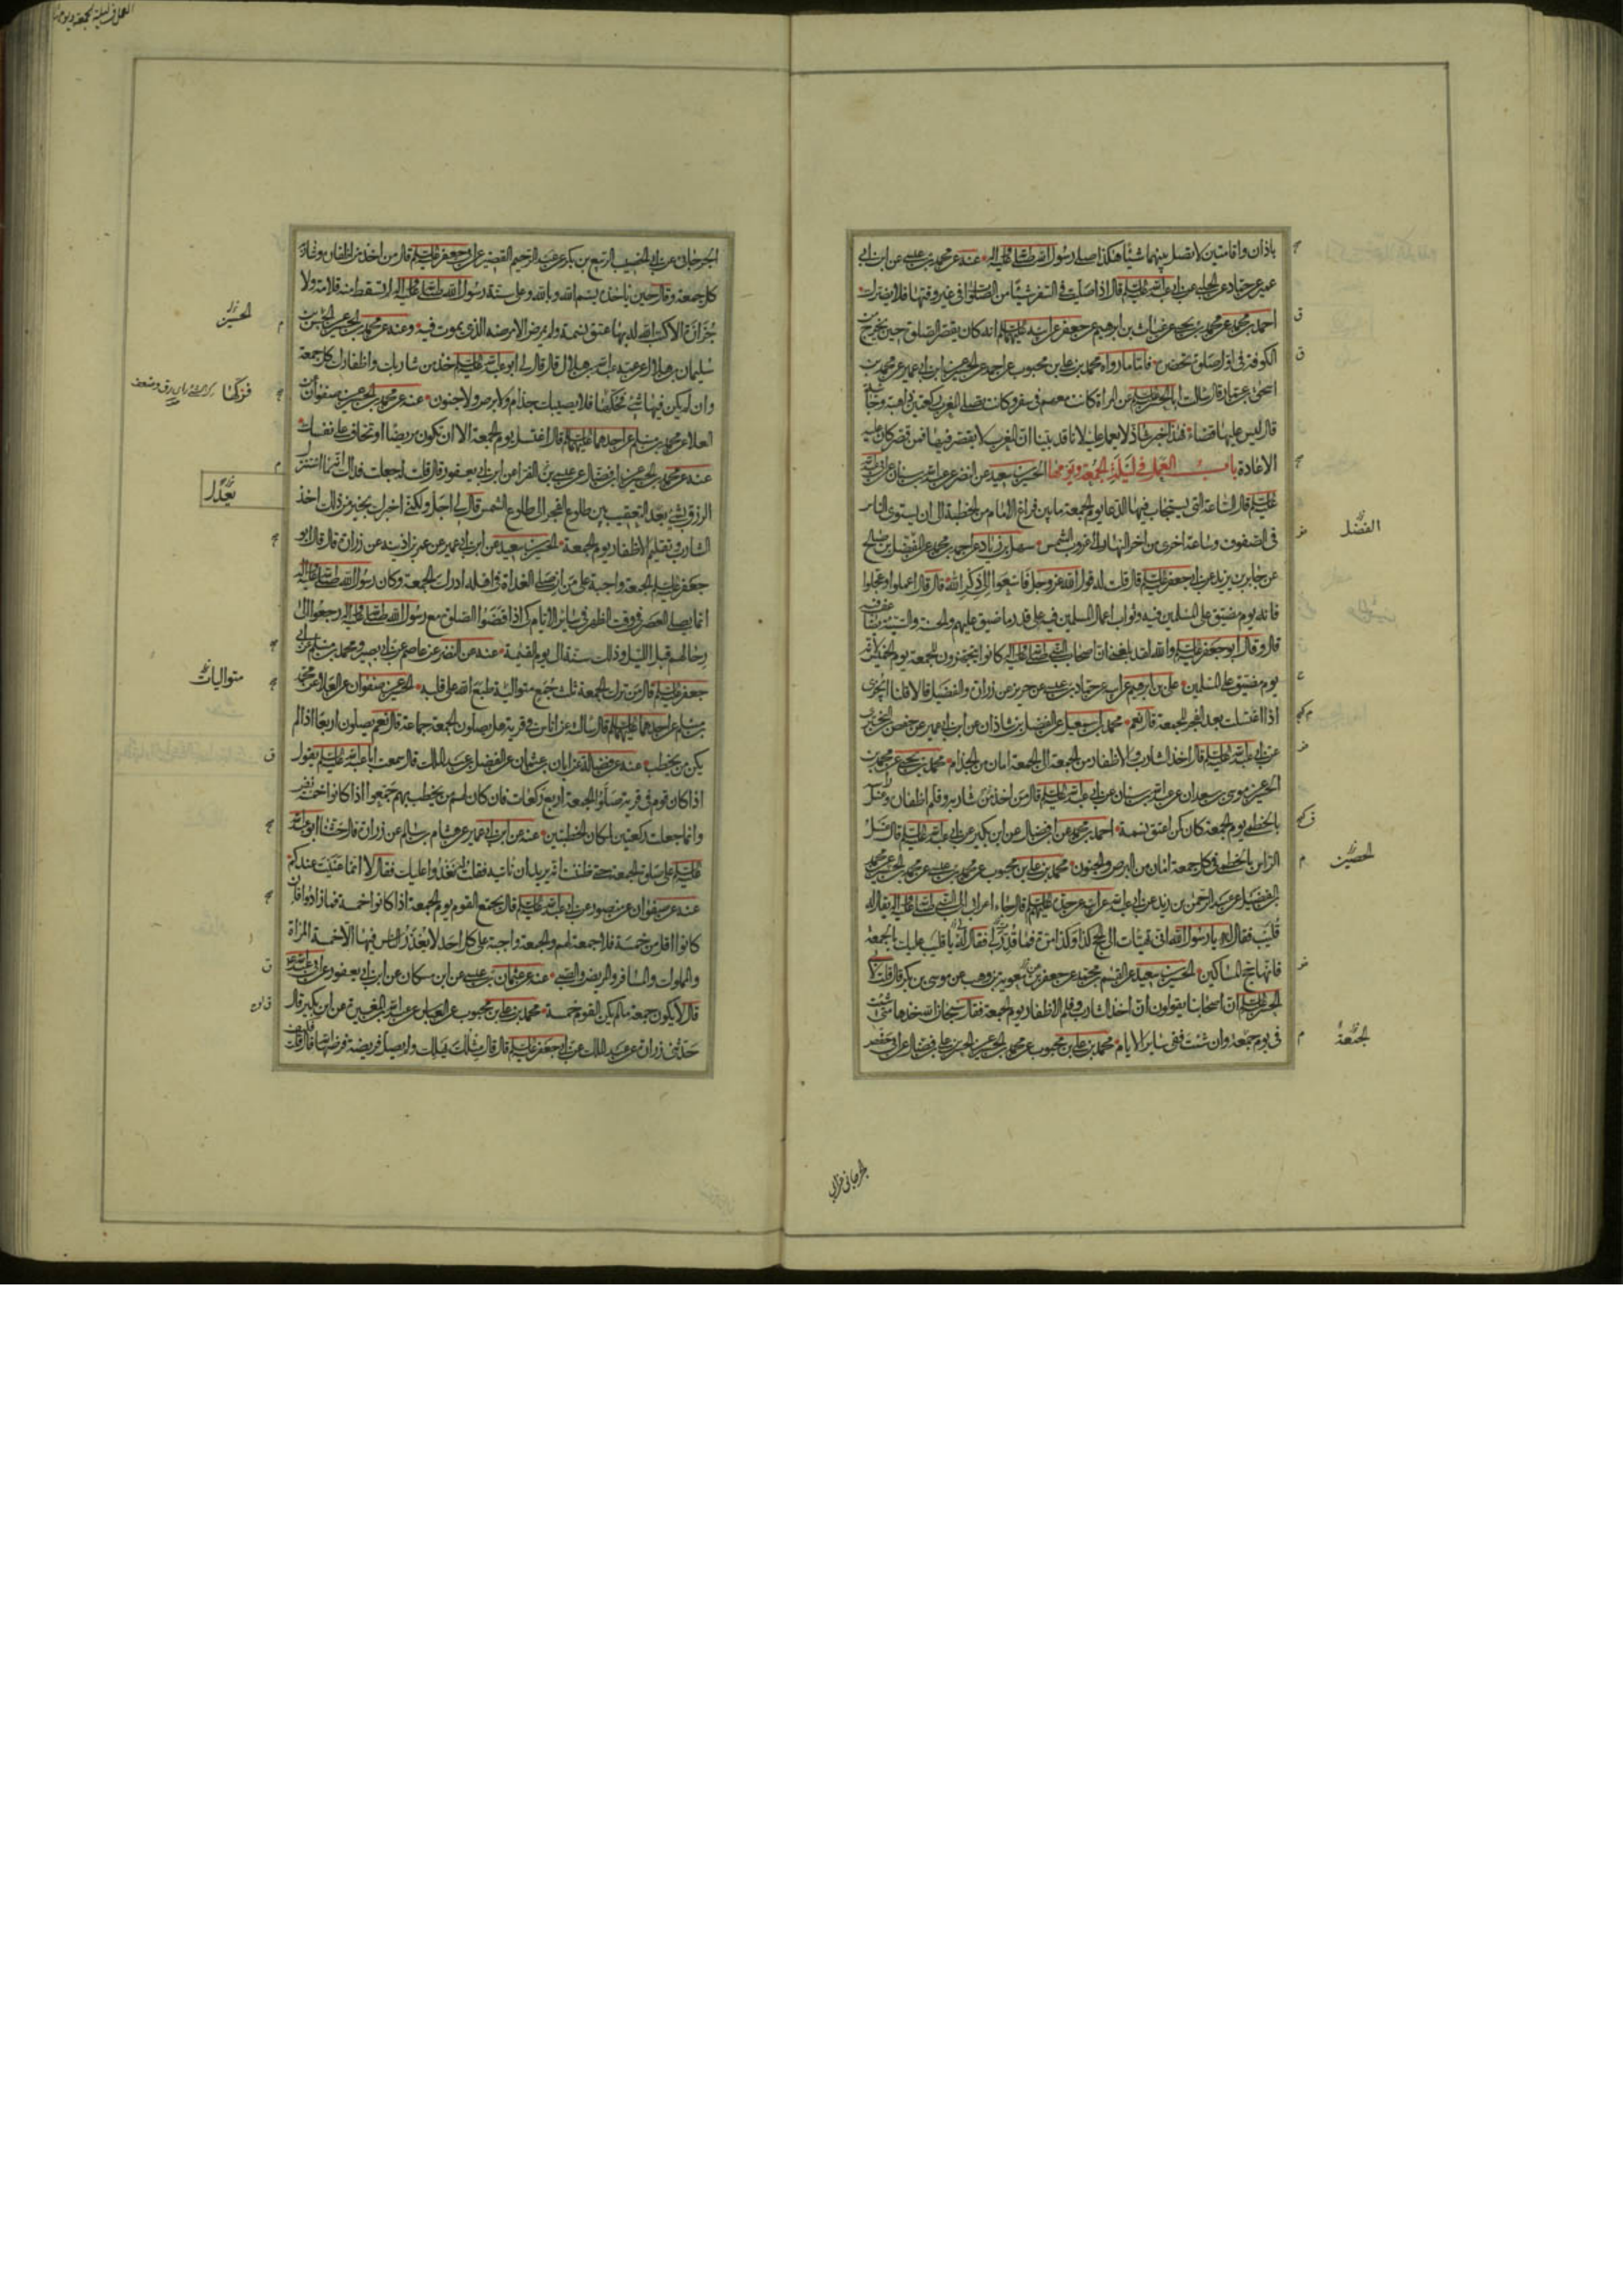 باذان واقامتين لا تفصل بينهما شيئا هكذا صلى رسول الله صلى الله عليه وآله عنه عن محمد بن عيسى عن ابن ابي
عمير عن حماد عن الحلبي عن ابي عبد الله عليه السلام قال اذا صليت في السفر شيئا من الصلوات في غير وقتها فلا يضرك
احمد بن محمد عن محمد بن يحيى عن غياث بن ابرهيم عن جعفر عن ابيه عليهما السلام انه كان يقصر الصلوة حين يخرج من
الكوفة في اول صلوة تحضر فاما ما رواه محمد بن علي بن محبوب عن احمد عن الحسين عن ابن ابي عمير عن محمد بن
اسحق بن عمار قال سالت ابا الحسن عليه السلام عن امراة كانت معهم في سفر وكانت تصلي المغرب ركعتين ذاهبة وجائية
قال ليس عليها قضاء فهذا خبر شاذ لا يعمل عليه لانا قد بينا ان المغرب لا يقصر فيها فمن قصر كان عليه
الاعادة باب العمل في ليلة الجمعة ويومها الحسين بن سعيد عن النضر عن عبد الله بن سنان عن ابي عبد الله
عليه السلام قال الساعة التي يستجاب فيها الدعا يوم الجمعة ما بين فراغ الامام من الخطبة الى ان يستوي الناس
في الصفوف وساعة اخرى من اخر النهار الى غروب الشمس سهل بن زياد عن احمد بن محمد عن المفضل بن صالح
عن جابر بن يزيد عن ابي جعفر عليه السلام قال قلت له قول الله عز وجل فاسعوا الى ذكر الله قال قال اعملوا وعجلوا
فانه يوم مضيق على المسلمين فيه وثواب اعمال المسلمين فيه على قدر ما ضيق عليهم والحسنة والسيئة تضاعف فيه
قال وقال ابو جعفر عليه السلام والله لقد بلغني ان اصحاب النبي صلى الله عليه وآله كانوا يتجهزون للجمعة يوم الخميس لانه
يوم مضيق على المسلمين علي بن ابرهيم عن ابيه عن حماد بن عيسى عن حريز عن زرارة والفضيل قالا قلنا ايجزي
اذا اغتسلت بعد الفجر للجمعة قال نعم محمد بن اسمعيل عن الفضل بن شاذان عن ابن ابي عمير عن حفص بن البختري
عن ابي عبد الله عليه السلام قال اخذ الشارب والاظفار من الجمعة الى الجمعة امان من الجذام محمد بن يحيى عن محمد بن
الحسين عن موسى بن سعدان عن عبد الله بن سنان عن ابي عبد الله عليه السلام قال من اخذ من شاربه وقلم اظفاره وغسل راسه
بالخطمي يوم الجمعة كان كمن اعتق نسمة احمد بن محمد عن ابن فضال عن ابن بكير عن ابي عبد الله عليه السلام قال غسل
الراس بالخطمي في كل جمعة امان من البرص والجنون محمد بن علي بن محبوب عن محمد بن عيسى عن محمد بن الحصين عن محمد
بن الفضيل عن عبد الرحمن بن زيد عن ابي عبد الله عن ابيه عن جده عليهم السلام قال جاء اعرابي الى النبي صلى الله عليه وآله يقال له
قليب فقال له يا رسول الله اني تهيئات الى الحج كذا وكذا مرة فما قدر لي فقال له يا قليب عليك بالجمعة
فانها حج المساكين الحسين بن سعيد عن القسم بن محمد عن جعفر بن معوية بن وهب عن موسى بن بكر قال قلت لابي
الحسن عليه السلام ان اصحابنا يقولون ان اخذ الشارب وقلم الاظفار يوم الجمعة فقال سبحان الله خذها متى شئت
في يوم جمعة وان شئت ففي ساير الايام محمد بن علي بن محبوب عن محمد بن الحسين عن الحسن بن علي بن فضال عن ابي حفص
الفضل
الحصين
الجمعة
الجرجاني عن ابي
العمل في ليلة الجمعة ويومها
الجرجاني عن ابي الخضيب الربيع بن بكر عن عبد الرحيم القصير عن ابي جعفر عليه السلام قال من اخذ من اظفاره وشاربه
كل جمعة وقال حين ياخذه بسم الله وبالله وعلى سنة رسول الله صلى الله عليه وآله لم تسقط منه قلامة ولا
جزازة الا كتب الله له بها عتق نسمة ولم يمرض الا مرضه الذي يموت فيه وعنه عن محمد بن الحسين عن الحسن بن
سليمان بن هلال عن عمه عبد الله بن هلال قال قال لي ابو عبد الله عليه السلام خذ من شاربك واظفارك كل جمعة
وان لم يكن فيها شيء فحكها فلا يصيبك جذام ولا برص ولا جنون عنه عن محمد بن الحسين عن صفوان عن
العلا عن محمد بن مسلم عن احدهما عليهما السلام قال اغتسل يوم الجمعة الا ان تكون مريضا او تخاف على نفسك
عنه عن محمد بن الحسين عن ابن فضال عن عيسى بن الفرا عن ابن ابي يعفور قال قلت له جعلت فداك انه ما استنزل
الرزق بشيء يعدل التعقيب بين طلوع الفجر الى طلوع الشمس قال لي اجل ولكني اخبرك بخير من ذلك اخذ
الشارب وتقليم الاظفار يوم الجمعة الحسين بن سعيد عن ابن ابي عمير عن عمر بن اذينه عن زرارة قال قال ابو
جعفر عليه السلام الجمعة واجبة على من ان صلى الغداة في اهله ادرك الجمعة وكان رسول الله صلى الله عليه وآله
انما يصلي العصر في وقت الظهر في ساير الايام كي اذا قضوا الصلوة مع رسول الله صلى الله عليه وآله رجعوا الى
رحالهم قبل الليل وذلك سنة الى يوم القيمة عنه عن النضر عن عاصم عن ابي بصير ومحمد بن مسلم عن ابي
جعفر عليه السلام قال من ترك الجمعة ثلث جمع متوالية طبع الله على قلبه الحسين عن صفوان عن العلا عن محمد
بن مسلم عن احدهما عليهما السلام قال سالته عن اناس في قرية هل يصلون الجمعة جماعة قال نعم يصلون اربعا اذا لم
يكن من يخطب عنه عن فضالة عن ابان بن عثمان عن الفضل بن عبد الملك قال سمعت ابا عبد الله عليه السلام يقول
اذا كان قوم في قرية صلوا الجمعة اربع ركعات فان كان لهم من يخطب بهم جمعوا اذا كانوا خمسة نفر
وانما جعلت ركعتين لمكان الخطبتين عنه عن ابن ابي عمير عن هشام بن سالم عن زرارة قال حثنا ابو عبد الله
عليه السلام على صلوة الجمعة حتى ظننت انه يريد ان ناتيه فقلت نغدوا عليك فقال لا انما عنيت عندكم
عنه عن صفوان عن منصور عن ابي عبد الله عليه السلام قال يجمع القوم يوم الجمعة اذا كانوا خمسة فما زادوا فان
كانوا اقل من خمسة فلا جمعة لهم والجمعة واجبة على كل احد لا يعذر الناس فيها الا خمسة المراة
والمملوك والمسافر والمريض والصبي عنه عن عثمان بن عيسى عن ابن مسكان عن ابن ابي يعفور عن ابي عبد الله
قال لا يكون جمعة ما لم يكن القوم خمسة محمد بن علي بن محبوب عن العباس عن عبد الله بن المغيرة عن ابن بكير قال
حدثني زرارة عن عبد الملك عن ابي جعفر عليه السلام قال قال مثلك يهلك ولم يصل فريضة فرضها الله قال قلت
الحسين
فزكها
يعدل
متواليات